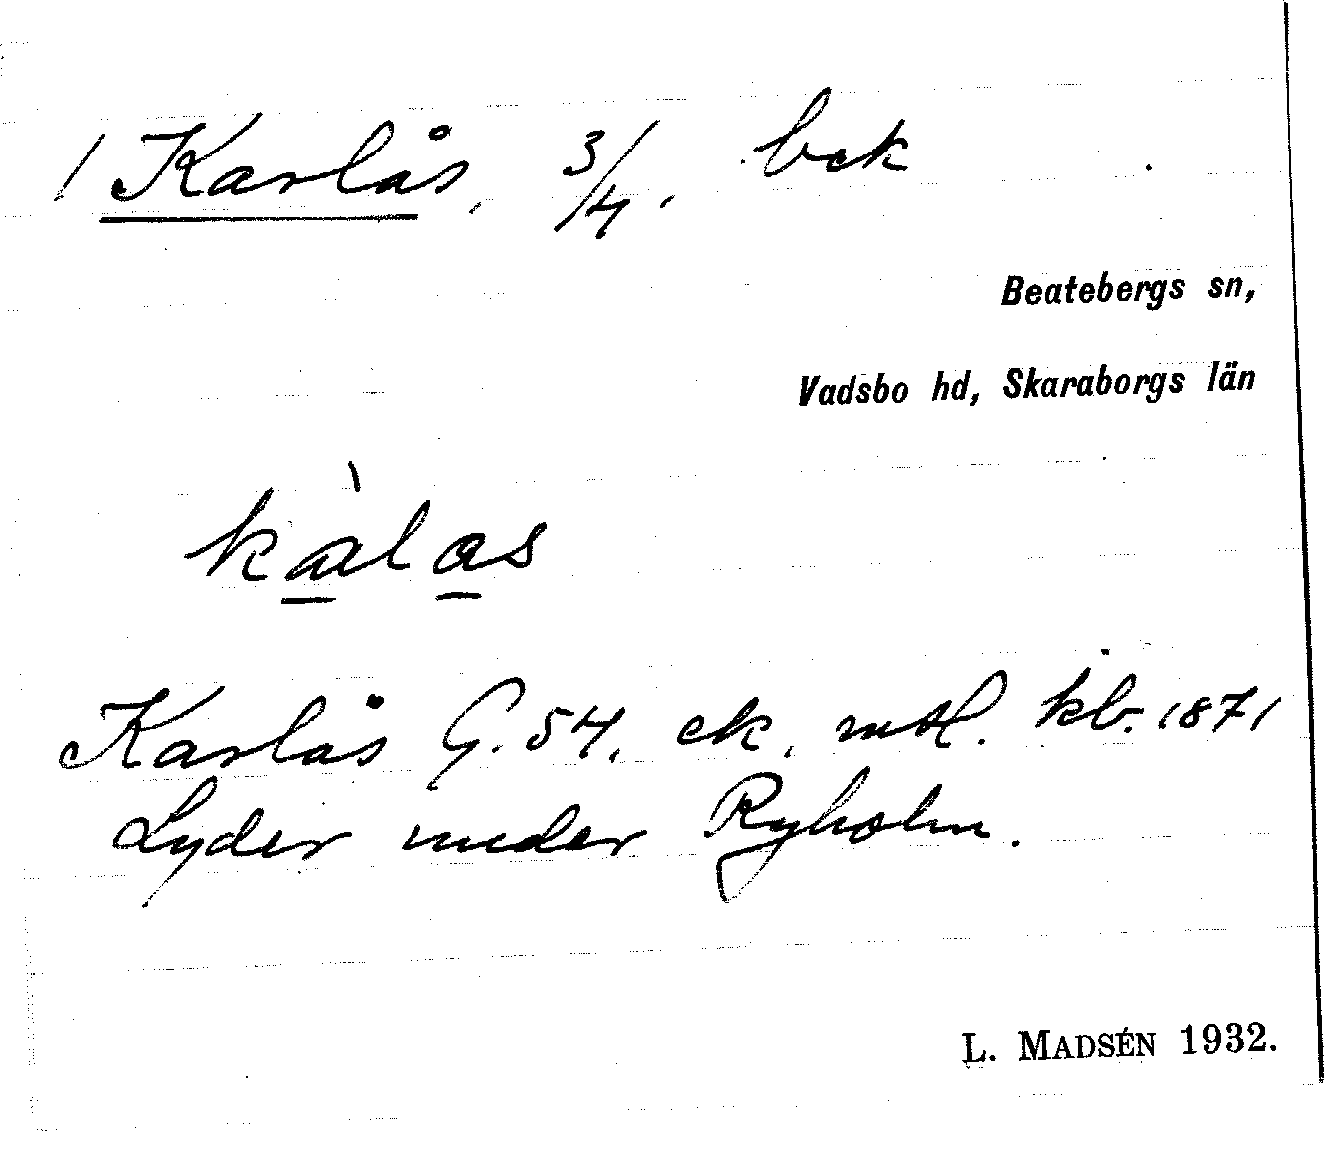 1 Karlås, 3/4, bck
Beatebergs sn,
Vadsbo hd, Skaraborgs län
kàlas
Karlås G. 54. ck. mtl. kb. 1871
Lyder under Ryholm.
L. MADSÉN 1932.